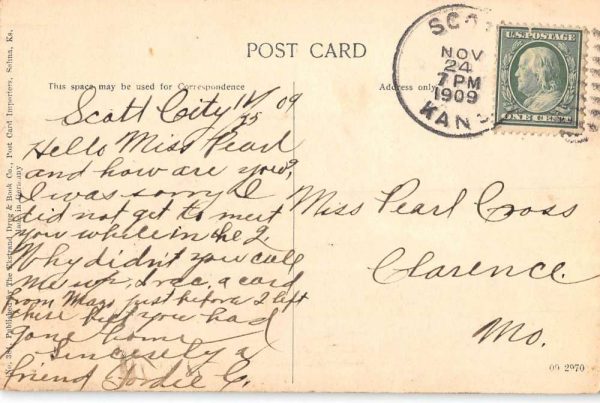 POST CARD
This space may be used for Correspondence
Address only
SCO
NOV
24
7 PM
1909
KANS
U.S. POSTAGE
ONE CENT
Scott City 11/25 09
Hello Miss Pearl
and how are you?
I was sorry I
did not get to meet
you while in the
Why didn't you call
me up, I rec. a card
from just before I left
there you had
gone home
Sincerely a
friend C.
Miss Pearl Cross
Clarence.
Mo.
09 2970
No. Published by The Ekstrand Drug & Book Co., Post Card Importers, Salina, Ks.
Made in Germany